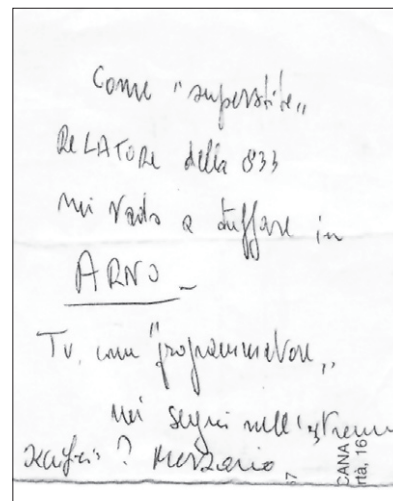 Come "superstite„
RELATORE della 833
mi vado a tuffare in
ARNO -
Tu, come "programmatore„
mi segui nell'estremo
? Merzario
67
CANA
rtà, 16